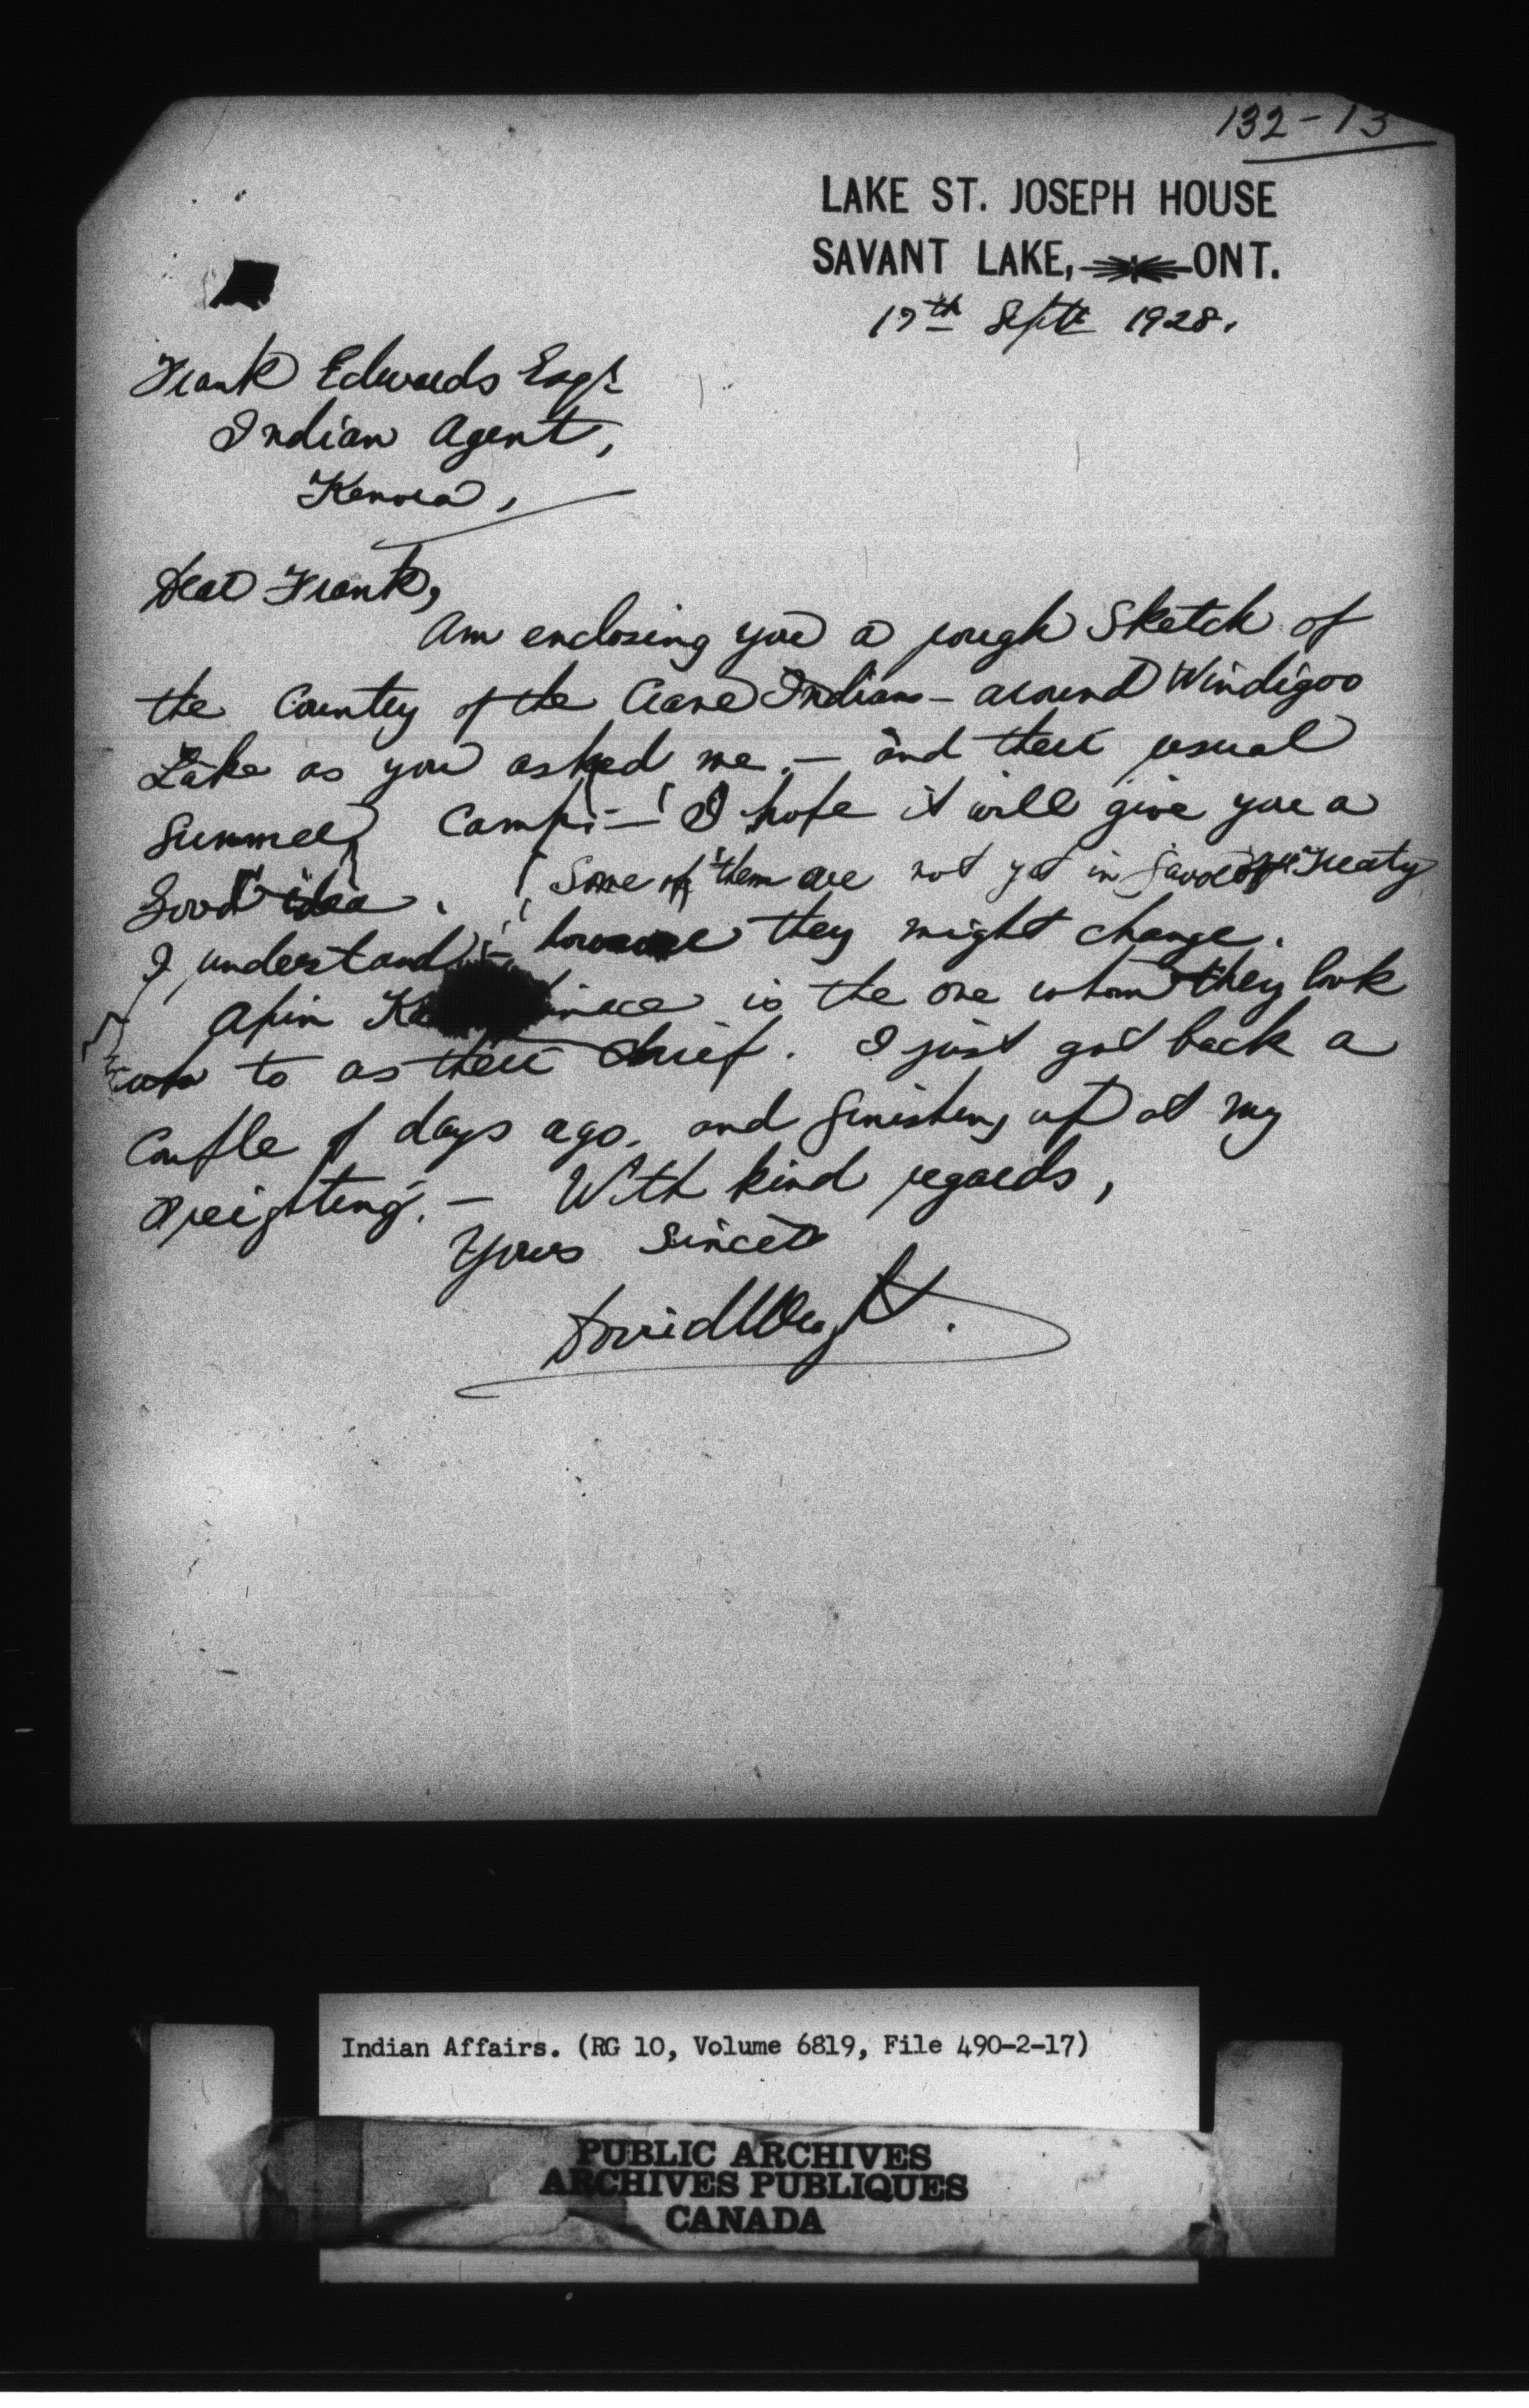 132-13
LAKE ST. JOSEPH HOUSE
SAVANT LAKE, ONT.
17th Septr 1928.
Frank Edwards Esqr
Indian Agent,
Kenora,
Dear Frank,
Am enclosing you a rough Sketch of
the Country of the Crane Indians - around Windigoo
Lake as you asked me. - and their usual
Summer Camps - I hope it will give you a
Good idea. Some of them are not yet in favor of Treaty
I understand - however they might change.
Apin is the one whom they look
up to as their Chief. I just got back a
Couple of days ago. and finishing up at my
Freighting. - With kind regards,
Yours Sincer
David
Indian Affairs. (RG 10, Volume 6819, File 490-2-17)
PUBLIC ARCHIVES
ARCHIVES PUBLIQUES
CANADA